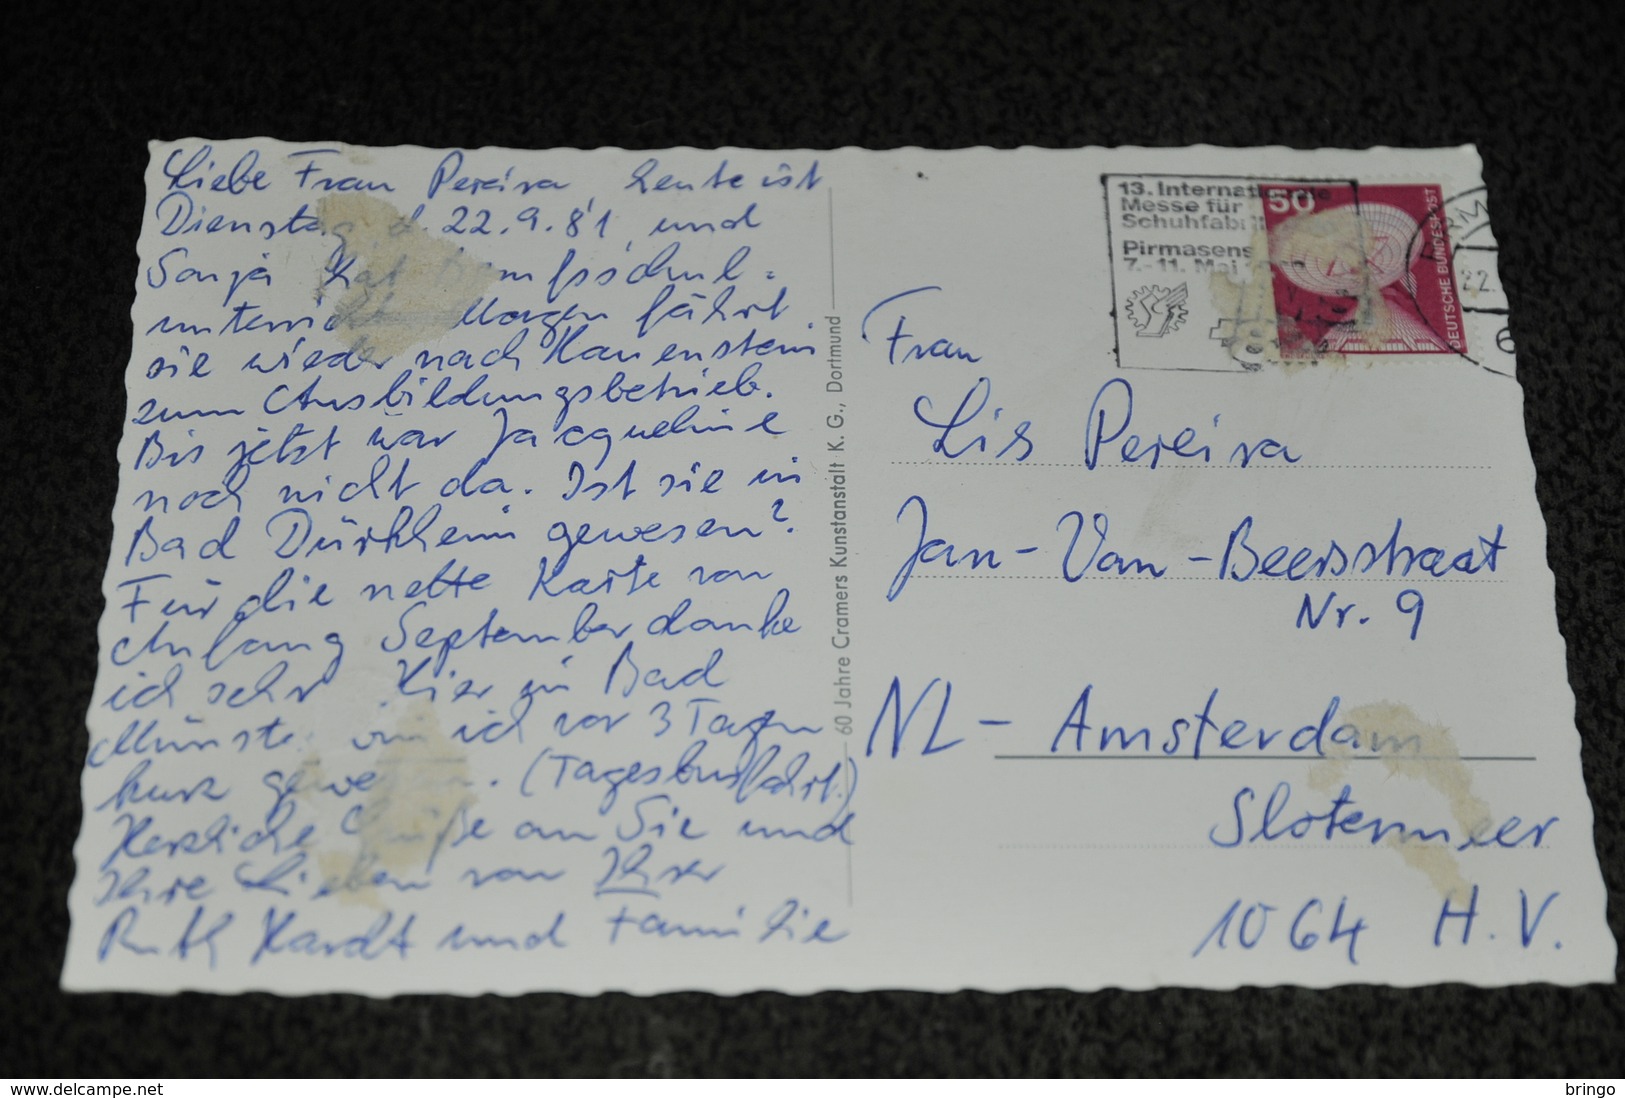 Liebe Frau Pereira, heute ist
Dienstag, d. 22.9.81, und
Sonja hat Berufsschul-
unterricht. Morgen fährt
sie wieder nach Hauenstein
zum Ausbildungsbetrieb.
Bis jetzt war Jacqueline
noch nicht da. Ist sie in
Bad Dürkheim gewesen?
Für die nette Karte von
Anfang September danke
ich sehr. Hier in Bad
Münster bin ich vor 3 Tagen
kurz gewesen. (Tagesbusfahrt.)
Herzliche Grüße an Sie und
Ihre Lieben von Ihrer
Ruth Hardt und Familie
60 Jahre Cramers Kunstanstalt K. G., Dortmund
13. Internationale
Messe für
Schuhfabri
Pirmasens
7.-11. Mai
50
DEUTSCHE BUNDESPOST
22.
6
Frau
Lis Pereira
Jan-Van-Beersstraat
Nr. 9
NL- Amsterdam
Slotermeer
1064 H.V.
www.delcampe.net
bringo